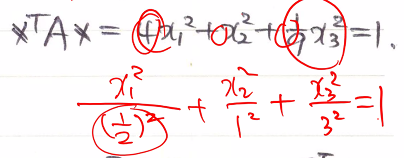 xᵀAx = 4x₁² + x₂² + 1/9 x₃² = 1.
x₁²/(1/2)² + x₂²/1² + x₃²/3² = 1